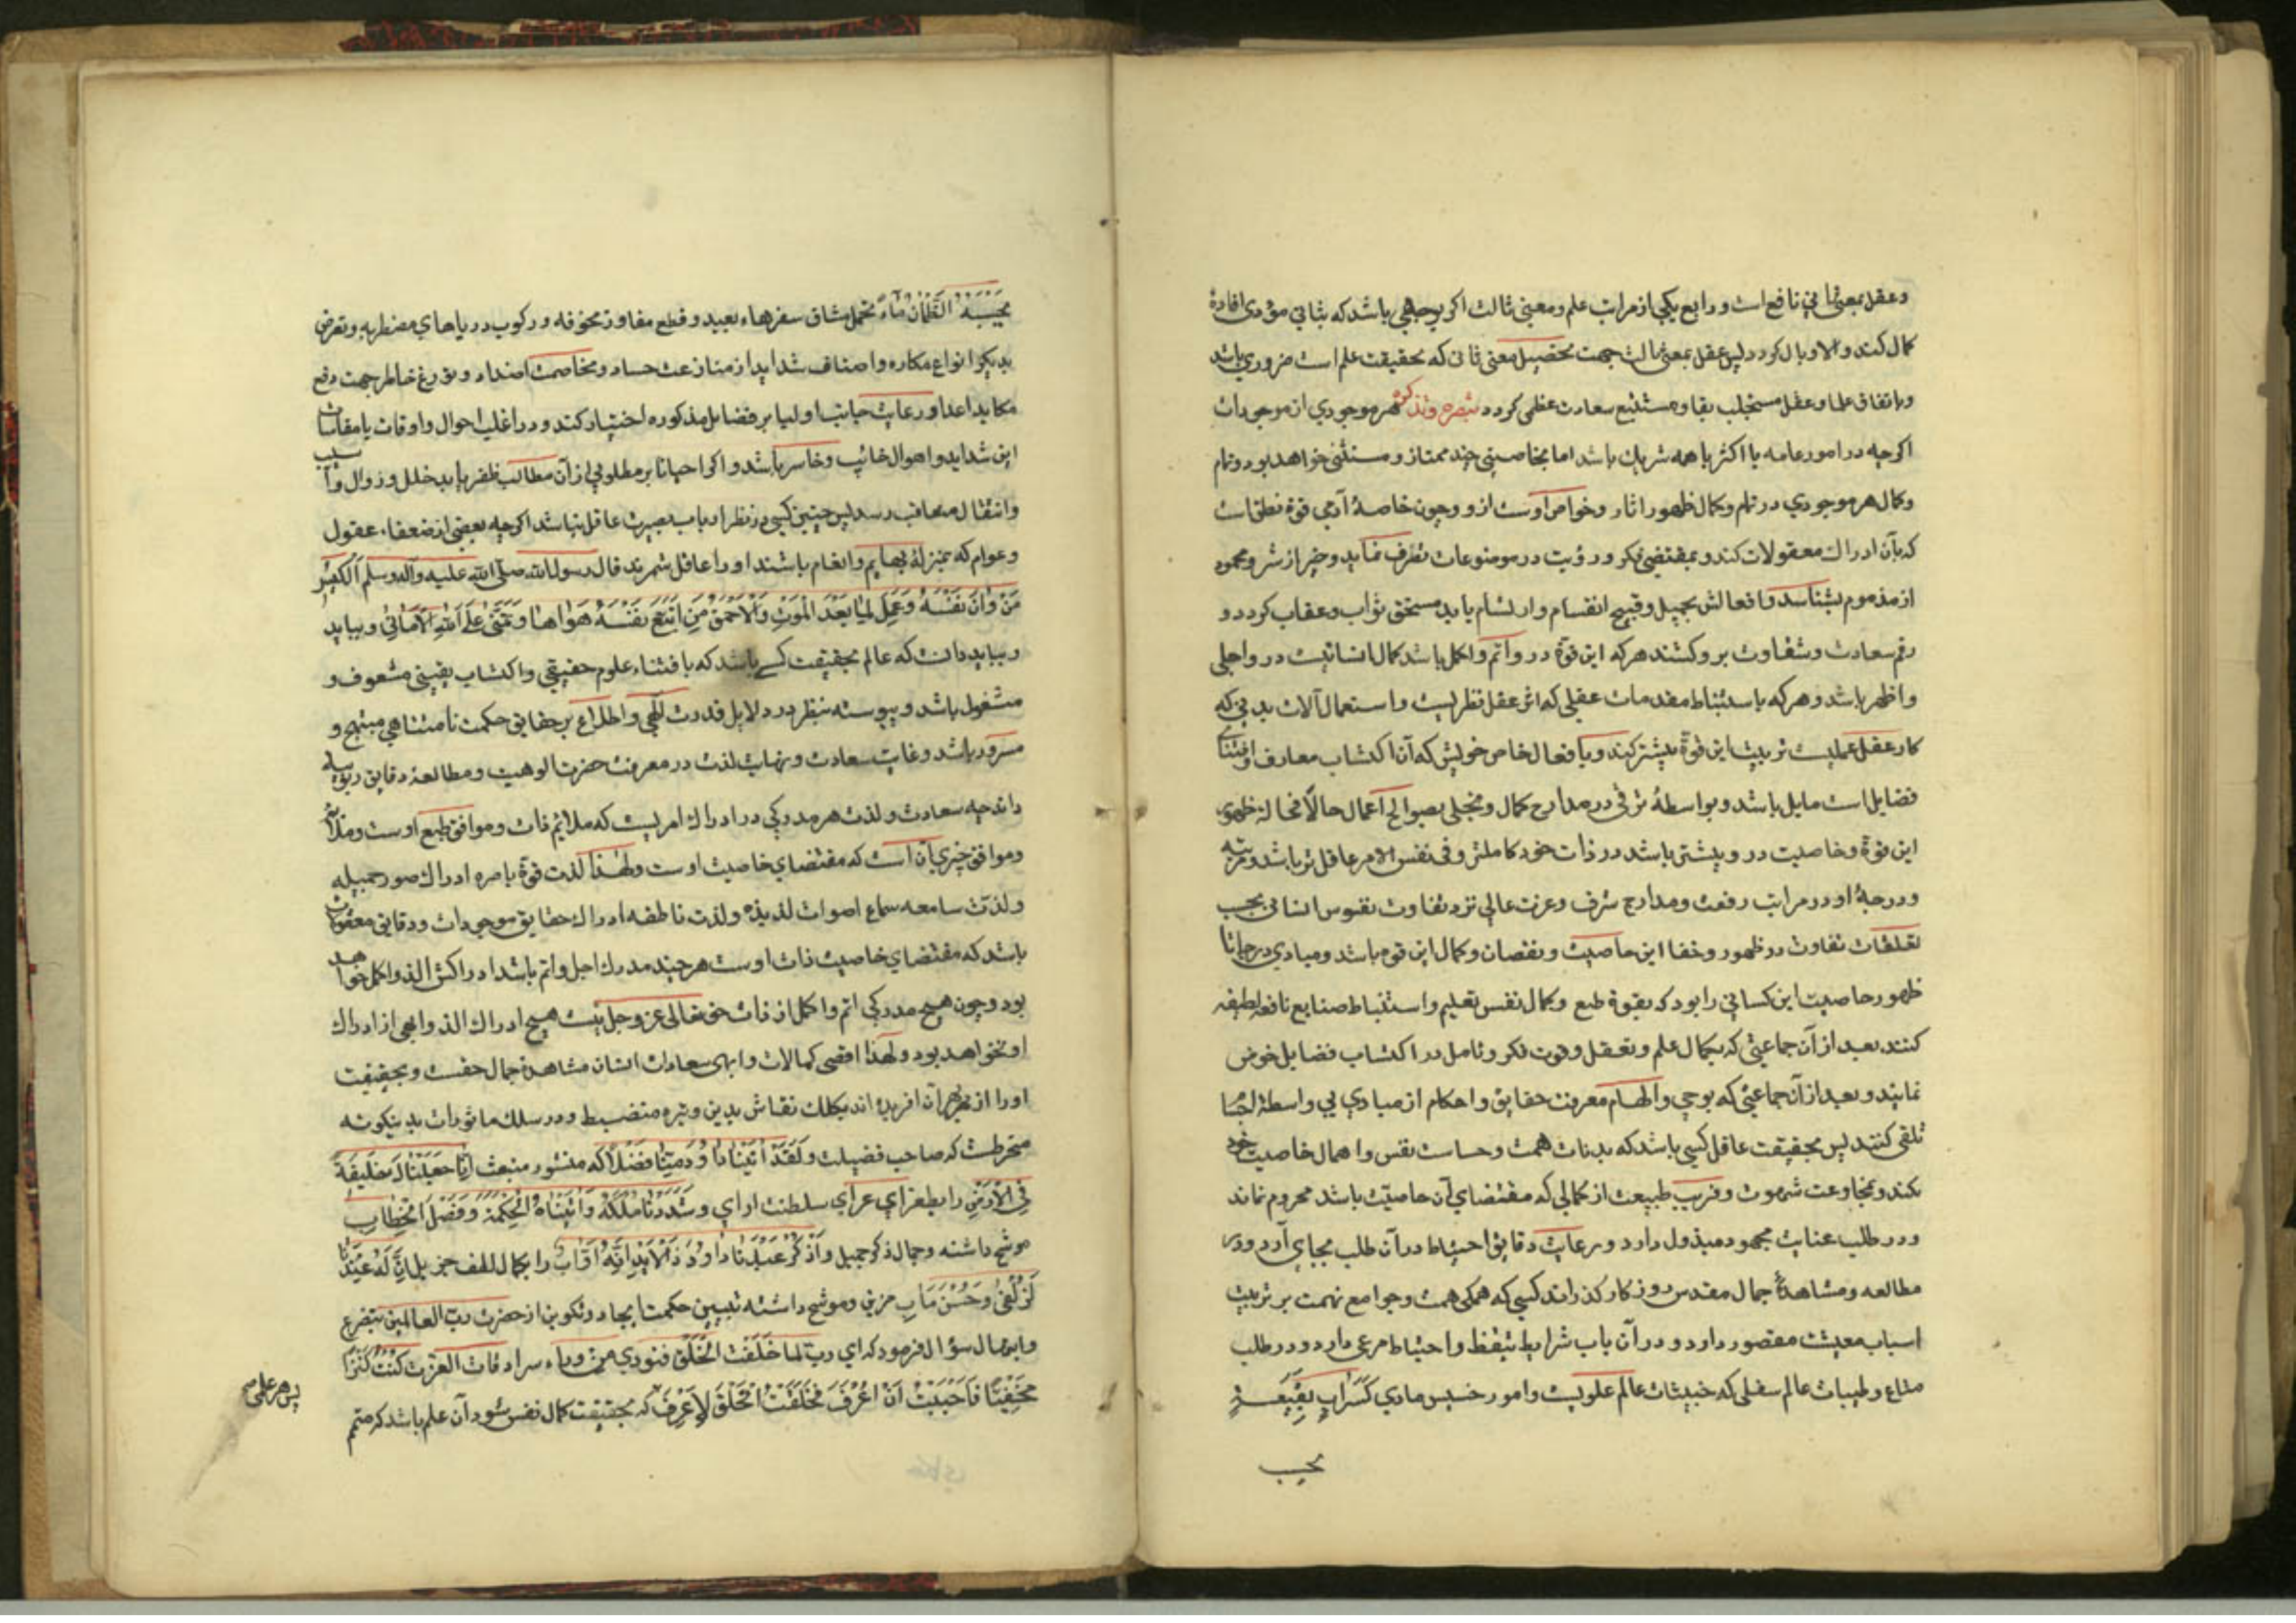 وعقل بمعنی ثانی نافع است و رابع یکی از مراتب علم و معنی ثالث اکر بوجهی باشد که بثانی مؤدی افادهٔ
کمال کند و الا وبال کردد پس عقل بمعنی ثالث جهت تحصیل معنی ثانی که بحقیقت علم است ضروری باشد
و باتفاق علما و عقل مستجلب بقا و مستتبع سعادت عظمی کردد تبصره وتذکره هر موجودی از موجودات
اکرچه در امور عامه با اکثر یا همه شریک باشد اما بخاصیتی چند ممتاز و مستثنی خواهد بود و تمام
و کمال هر موجودی در تمام و کمال ظهور اثار و خواص اوست ازو وچون خاصهٔ آدمی قوة نطق است
که بآن ادراک معقولات کند و بمقتضی فکر و رؤیت در موضوعات تصرف نماید و خیر از شر و محمود
از مذموم بشناسد و افعالش بجمیل و قبیح انقسام و ارتسام یابد مستحق ثواب و عقاب کردد و
رقم سعادت و شقاوت برو کشند هر که این قوة درو اتم و اکمل باشد کمال انسانیت درو اجلی
و اظهر باشد و هر که باستنباط مقدمات عقلی که اثر عقل نظریست و استعمال آلات بدنی که
کار عقل عملیست تربیت این قوة بیشتر کند و با فعال خاص خویش که آن اکتساب معارف و اقتنای
فضایل است مایل باشد و بواسطهٔ ترقی در مدارج کمال و تحلی بصوالح اعمال حالا فحالا ظهور
این قوة و خاصیت درو بیشتر باشد در ذات خود کاملتر و فی نفس الامر عاقل تر باشد و مرتبه
و درجهٔ او در مراتب رفعت و مدارج شرف و عزت عالی تر و تفاوت نفوس انسانی بحسب
تعلقات تفاوت در ظهور و خفا این خاصیت و نقصان و کمال این قوه باشد و مبادی درجات
ظهور خاصیت این کسانی را بود که بقوة طبع و کمال نفس تعلیم و استنباط صنایع نافعه لطیفه
کنند بعد از آن جماعتی که بکمال علم و تعقل و قوت فکر و تامل در اکتساب فضایل خوض
نمایند و بعد از آن جماعتی که بوحی و الهام معرفت حقایق و احکام از مبادی بی واسطهٔ اجسام
تلقی کنند پس بحقیقت عاقل کسی باشد که بدنائت همت و خساست نفس و اهمال خاصیت خود
نکند و بمخادعت شهوت و فریب طبیعت از کمالی که مقتضای آن خاصیت باشد محروم نماند
و در طلب عنایت مجهود مبذول دارد و رعایت دقایق احتیاط در آن طلب بجای آرد و در
مطالعه و مشاهدهٔ جمال مقدس روزکار کذراند کسی که همکی همت و جوامع نهمت بر تربیت
اسباب معیشت مقصور دارد و در آن باب شرایط تیقظ و احتیاط مرعی دارد و در طلب
متاع و طیبات عالم سفلی که خبیثات عالم علویست و امور خسیس مادی کَسَرابٍ بِقِیعَةٍ
یحسب
یَحْسَبُهُ الظَّمْآنُ مَاءً تحمل مشاق سفرهاء بعید و قطع مفاوز مخوفه و رکوب دریاهای مضطربه و تعرض
بدیکر انواع مکاره و اصناف شداید از منازعت حساد و مخاصمت اضداد و توزع خاطر جهت دفع
مکاید اعدا و رعایت جانب اولیا بر فضایل مذکوره اختیار کند و در اغلب احوال و اوقات با مقاسات
این شداید و اهوال خائب و خاسر باشد و اکر احیانا بر مطلوبی از آن مطالب ظفر یابد خلل و زوال و آسیب
و انتقال متعاقب رسد پس چنین کسی در نظر ارباب بصیرت عاقل نباشد اکرچه بعضی از ضعفاء عقول
و عوام که بمنزلهٔ بهایم و انعام باشند او را عاقل شمرند قال رسول الله صلی الله علیه وآله وسلم الکَیِّسُ
مَنْ دَانَ نَفْسَهُ وَعَمِلَ لِمَا بَعْدَ الْمَوْتِ وَالْأَحْمَقُ مَنِ اتَّبَعَ نَفْسَهُ هَوَاهَا وَتَمَنَّی عَلَی اللهِ الْأَمَانِیَّ و بباید
و بباید دانست که عالم بحقیقت کسی باشد که باقتناء علوم حقیقی و اکتساب یقینی مشعوف و
مشغول باشد و پیوسته بنظر در دلایل قدرت الهی و اطلاع بر حقایق حکمت نامتناهی مبتهج و
مسرور باشد و غایت سعادت و نهایت لذت در معرفت حضرت الوهیت و مطالعهٔ دقایق ربوبیه
داند چه سعادت و لذت هر مدرکی در ادراک امریست که ملایم ذات و موافق طبع اوست و ملایم
و موافق چیزی آن است که مقتضای خاصیت اوست و لهذا لذت قوة باصره ادراک صور جمیله
و لذت سامعه سماع اصوات لذیذه و لذت ناطقه ادراک حقایق موجودات و دقایق معقولات
باشد که مقتضای خاصیت ذات اوست هر چند مدرک اجل و اتم باشد ادراکش الذ و اکمل خواهد
بود و چون هیچ مدرکی اتم و اکمل از ذات حق تعالی عز و جل نیست هیچ ادراک الذ و ابهی از ادراک
او نخواهد بود و لهذا اقصی کمالات و ابهی سعادات انسان مشاهدهٔ جمال حقست و بحقیقت
او را از بهر آن آفریده اند بکلک نقاش بدین وتیره منضبط و در سلک ماثورات بدینکونه
منخرطست که صاحب فضیلت وَلَقَدْ آتَیْنَا دَاوُدَ مِنَّا فَضْلًا که منشور منبعث إِنَّا جَعَلْنَاکَ خَلِیفَةً
فِی الْأَرْضِ را بطغرای غرای سلطنت ارای وَشَدَدْنَا مُلْکَهُ وَآتَیْنَاهُ الْحِکْمَةَ وَفَصْلَ الْخِطَابِ
موشح داشته و جمال ذکر جمیل وَاذْکُرْ عَبْدَنَا دَاوُدَ ذَا الْأَیْدِ إِنَّهُ أَوَّابٌ را بکمال لطف جزیل إِنَّ لَهُ عِنْدَنَا
لَزُلْفَی وَحُسْنَ مَآبٍ مزین و موشح داشته تبیین حکمت ایجاد و تکوین از حضرت رب العالمین بتضرع
و ابتهال سؤال فرمود که ای رب لما خلقت الخلق فنودی من وراء سرادقات العزت کُنْتُ کَنْزًا
مَخْفِیًّا فَأَحْبَبْتُ أَنْ أُعْرَفَ فَخَلَقْتُ الْخَلْقَ لِأُعْرَفَ که بحقیقت کمال نفس شود آن علم باشد که متمم
پس هر علمی